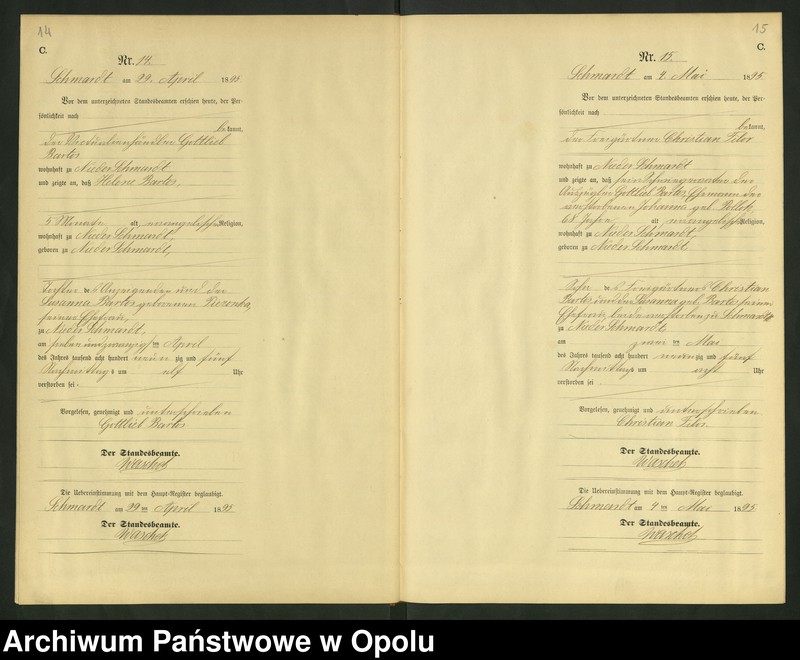 14
C.
Nr. 14.
Schmardt am 29. April 1895
Vor dem unterzeichneten Standesbeamten erschien heute, der Per-
sönlichkeit nach
bekannt,
Gottlieb
Bartos
wohnhaft zu Nieder Schmardt
und zeigte an, daß Helene Bartos,
5 Monate alt evangelischer Religion,
wohnhaft zu Nieder Schmardt,
geboren zu Nieder Schmardt,
Tochter des Anzeigenden und der
Susanna Bartos geborenen
seiner Ehefrau,
zu Nieder Schmardt,
am sieben und zwanzigsten April
des Jahres tausend acht hundert neunzig und fünf
Nachmittags um elf Uhr
verstorben sei.
Vorgelesen, genehmigt und unterschrieben
Gottlieb Bartos
Der Standesbeamte.
Die Uebereinstimmung mit dem Haupt-Register beglaubigt.
Schmardt am 29 ten April 1895
Der Standesbeamte.
15
C.
Nr. 15.
Schmardt am 4. Mai 1895.
Vor dem unterzeichneten Standesbeamten erschien heute, der Per-
sönlichkeit nach
bekannt,
der Christian
wohnhaft zu Nieder Schmardt
und zeigte an, daß sein der
Auszügler Gottlieb Bartos Ehemann der
verstorbenen Johanna geb. Pollok,
68 Jahre alt evangelischer Religion,
wohnhaft zu Nieder Schmardt,
geboren zu Nieder Schmardt
Sohn des Christian
Bartos und der Susanna geb. Bartos seiner
Ehefrau, beide verstorben zu Schmardt
zu Nieder Schmardt
am zwei ten Mai
des Jahres tausend acht hundert neunzig und fünf
Nachmittags um acht Uhr
verstorben sei.
Vorgelesen, genehmigt und unterschrieben
Christian
Der Standesbeamte.
Die Uebereinstimmung mit dem Haupt-Register beglaubigt.
Schmardt am 4 ten Mai 1895
Der Standesbeamte.
Archiwum Państwowe w Opolu